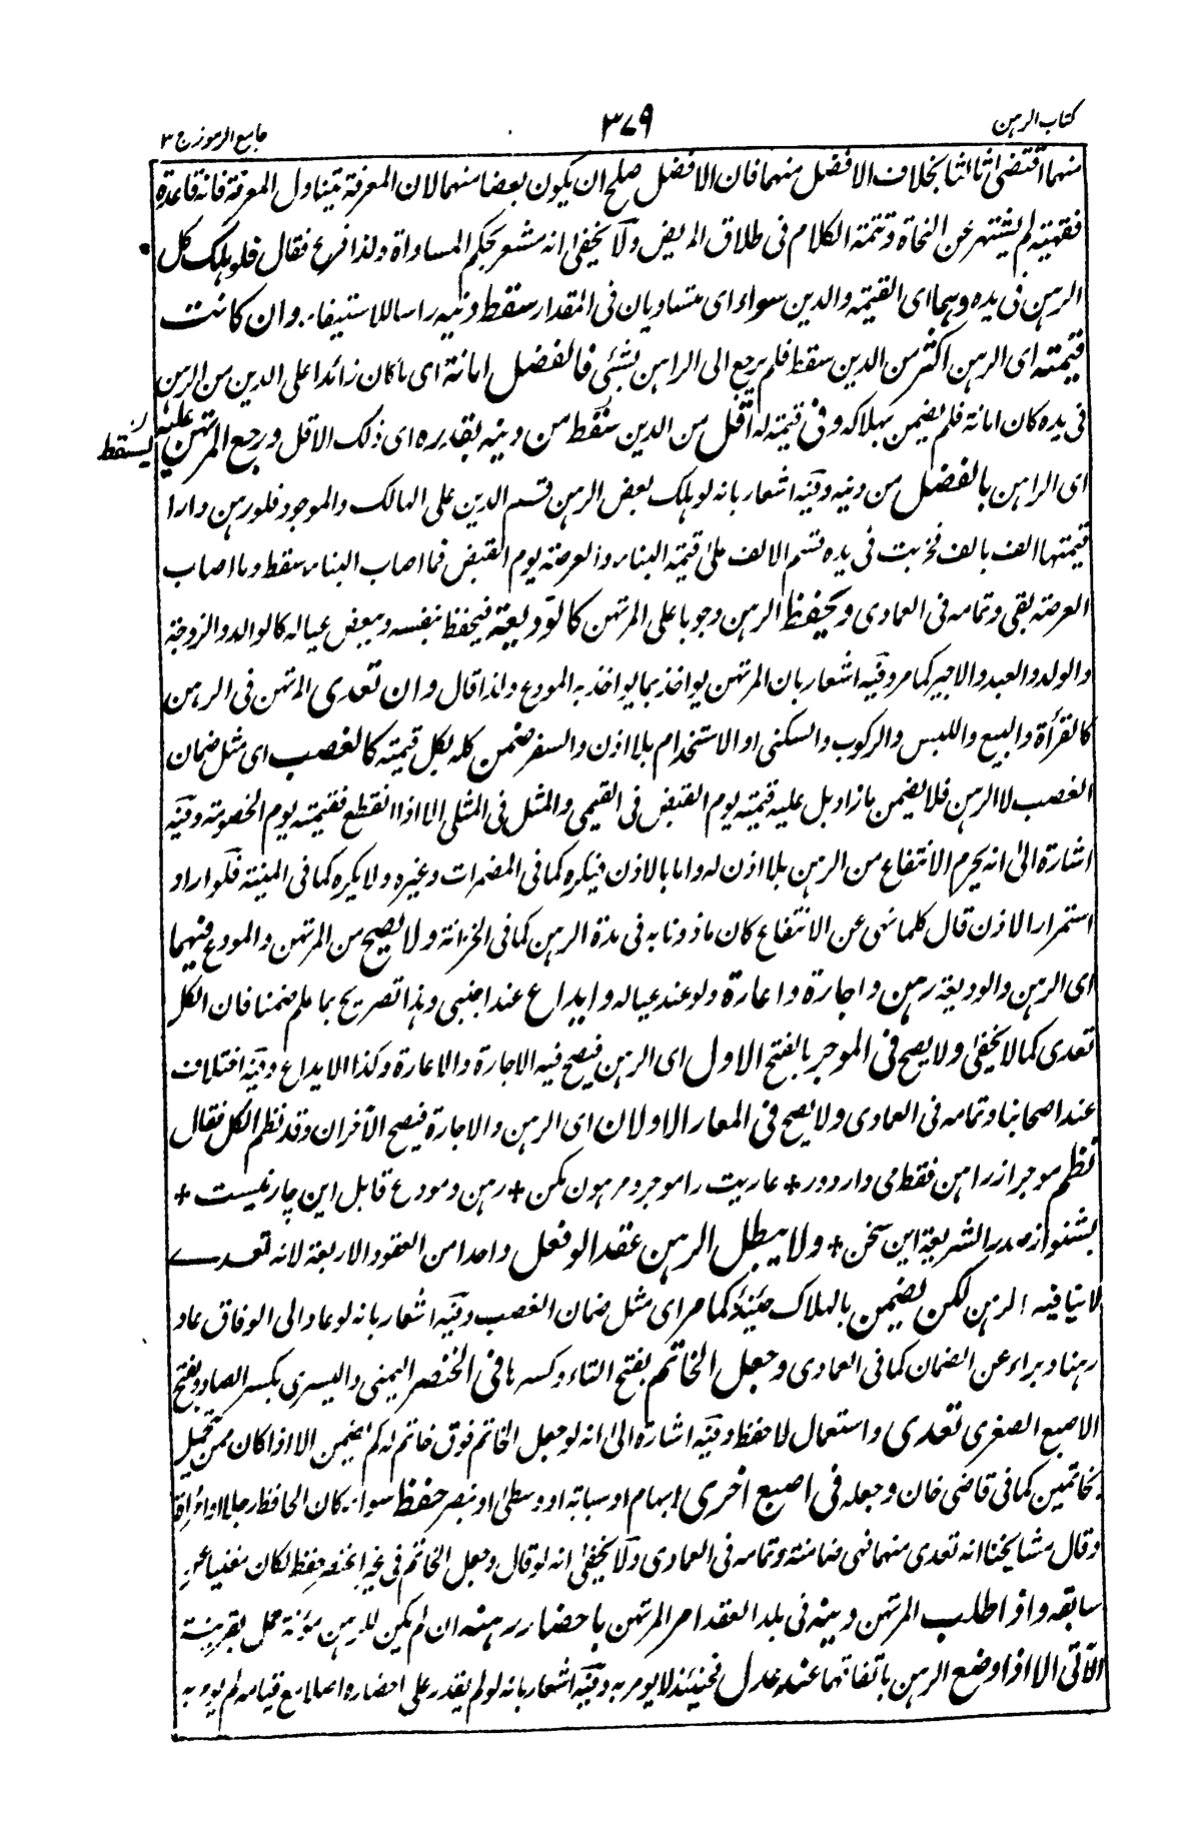 كتاب الرهن
٣٧٩
جامع الرموز ج ٣
منهما اقتضى ثالثا بخلاف الافضل منهما فان الافضل صلح ان يكون بعضا منهما لان المعرفة يتناول المعرفة فانه قاعدة
فقهية لم يشتهر عن النحاة وتتمة الكلام فى طلاق المريض ولا يخفى انه مشعر بحكم المساواة ولذا فرع فقال فلو هلك كل
الرهن فى يده وهما اى القيمة والدين سواء اى متساويان فى المقدار سقط دينه راسا للاستيفاء وان كانت
قيمته اى الرهن اكثر من الدين سقط فلم يرجع الى الراهن بشئ فالفضل امانة اى ما كان زائدا على الدين من الرهن
فى يده كان امانة فلم يضمن بهلاكه وفى قيمة له اقل من الدين سقط من دينه بقدره اى ذلك الاقل ورجع المرتهن عليه
يسقط
اى الراهن بالفضل من دينه وفيه اشعار بانه لو هلك بعض الرهن قسم الدين على الهالك والموجود فلو رهن دارا
قيمتها الف بالف فخربت فى يده قسم الالف على قيمة البناء والعرصة يوم القبض فما اصاب البناء سقط وما اصاب
العرصة بقى وتمامه فى العمادى ويحفظ الرهن وجوبا على المرتهن كالوديعة فيحفظ بنفسه وببعض عياله كالوالد والزوجة
والولد والعبد والاجير كما مر وفيه اشعار بان المرتهن يواخذ بما يواخذ به المودع ولذا قال وان تعدى المرتهن فى الرهن
كالقرأة والبيع واللبس والركوب والسكنى او الاستخدام بلا اذن والسفر ضمن كله بكل قيمته كالغصب اى مثل ضمان
الغصب لا الرهن فلا يضمن ما زاد بل عليه قيمته يوم القبض فى القيمى والمثل فى المثلى الا اذا انقطع فقيمته يوم الخصومة وفيه
اشارة الى انه يحرم الانتفاع من الرهن بلا اذن له واما بالاذن فيكره كما فى المضمرات وغيره ولا يكره كما فى المنية فلو اراد
استمرار الاذن قال كلما نهى عن الانتفاع كان ماذونا به فى مدة الرهن كما فى الخزانة ولا يصح من المرتهن والمودع فيهما
اى الرهن والوديعة رهن واجارة واعارة ولو عند عياله وايداع عند اجنبى وهذا تصريح بما علم ضمنا فان الكل
تعدى كما لا يخفى ولا يصح فى الموجر بالفتح الاول اى الرهن فيصح فيه الاجارة والاعارة وكذا الايداع وفيه اختلاف
عند اصحابنا وتمامه فى العمادى ولا يصح فى المعار الاولان اى الرهن والاجارة فيصح الآخران وقد نظم الكل فقال
نظم موجر از راهن فقط مى دار دور + عاريت را موجر ومرهون مكن + رهن ومودع قابل اين چار نيست +
بشنو از صدر الشريعة اين سخن + ولا يبطل الرهن عقد الو فعل واحدا من العقود الاربعة لانه تعدى
لا ينافيه الرهن لكن يضمن بالهلاك حينئذ كما مر اى مثل ضمان الغصب وفيه اشعار بانه لو عاد الى الوفاق عاد
رهنا وبراء عن الضمان كما فى العمادى وجعل الخاتم بفتح التاء وكسرها فى الخنصر اليمنى واليسرى بكسر الصاد وبفتح
الاصبع الصغرى تعدى واستعمال لا حفظ وفيه اشارة الى انه لو جعل الخاتم فوق خاتم له لم يضمن الا اذا كان ممن يتجمل
بخاتمين كما فى قاضى خان وجعله فى اصبع اخرى ابهام او سبابة او وسطى او بنصر حفظ سواء كان الحافظ رجلا او امرأة
وقال مشايخنا انه تعدى منها فهى ضامنة وتمامه فى العمادى ولا يخفى انه لو قال وجعل الخاتم فى غير الخنصر حفظ لكان مغنيا عن
سابقه واذا طلب المرتهن دينه فى بلد العقد امر المرتهن باحضار رهنه ان لم يكن للرهن مؤنة حمل بقرينة
الآتى الا اذا وضع الرهن باتفاقهما عند عدل فحينئذ لا يومر به وفيه اشعار بانه لو لم يقدر على احضاره اصلا مع قيامه لم يومر به